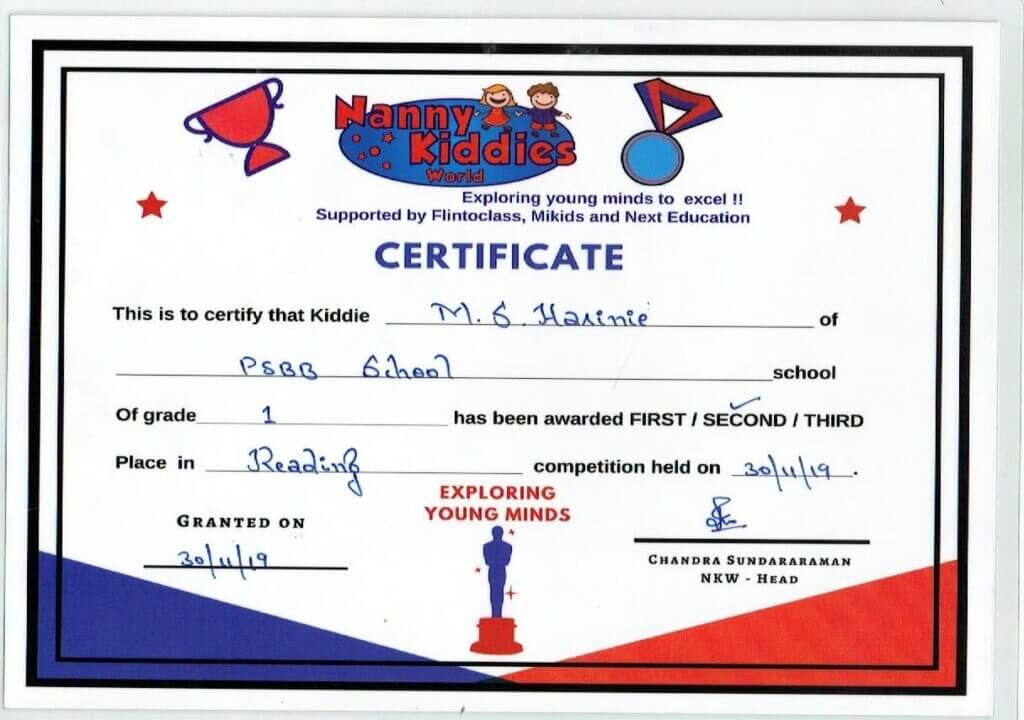 Nanny
Kiddies
World
Exploring young minds to excel !!
Supported by Flintoclass, Mikids and Next Education
CERTIFICATE
This is to certify that Kiddie M. S. Harinie of
PSBB School school
Of grade 1 has been awarded FIRST / SECOND / THIRD
Place in Reading competition held on 30/11/19.
EXPLORING
YOUNG MINDS
GRANTED ON
30/11/19
CHANDRA SUNDARARAMAN
NKW - HEAD